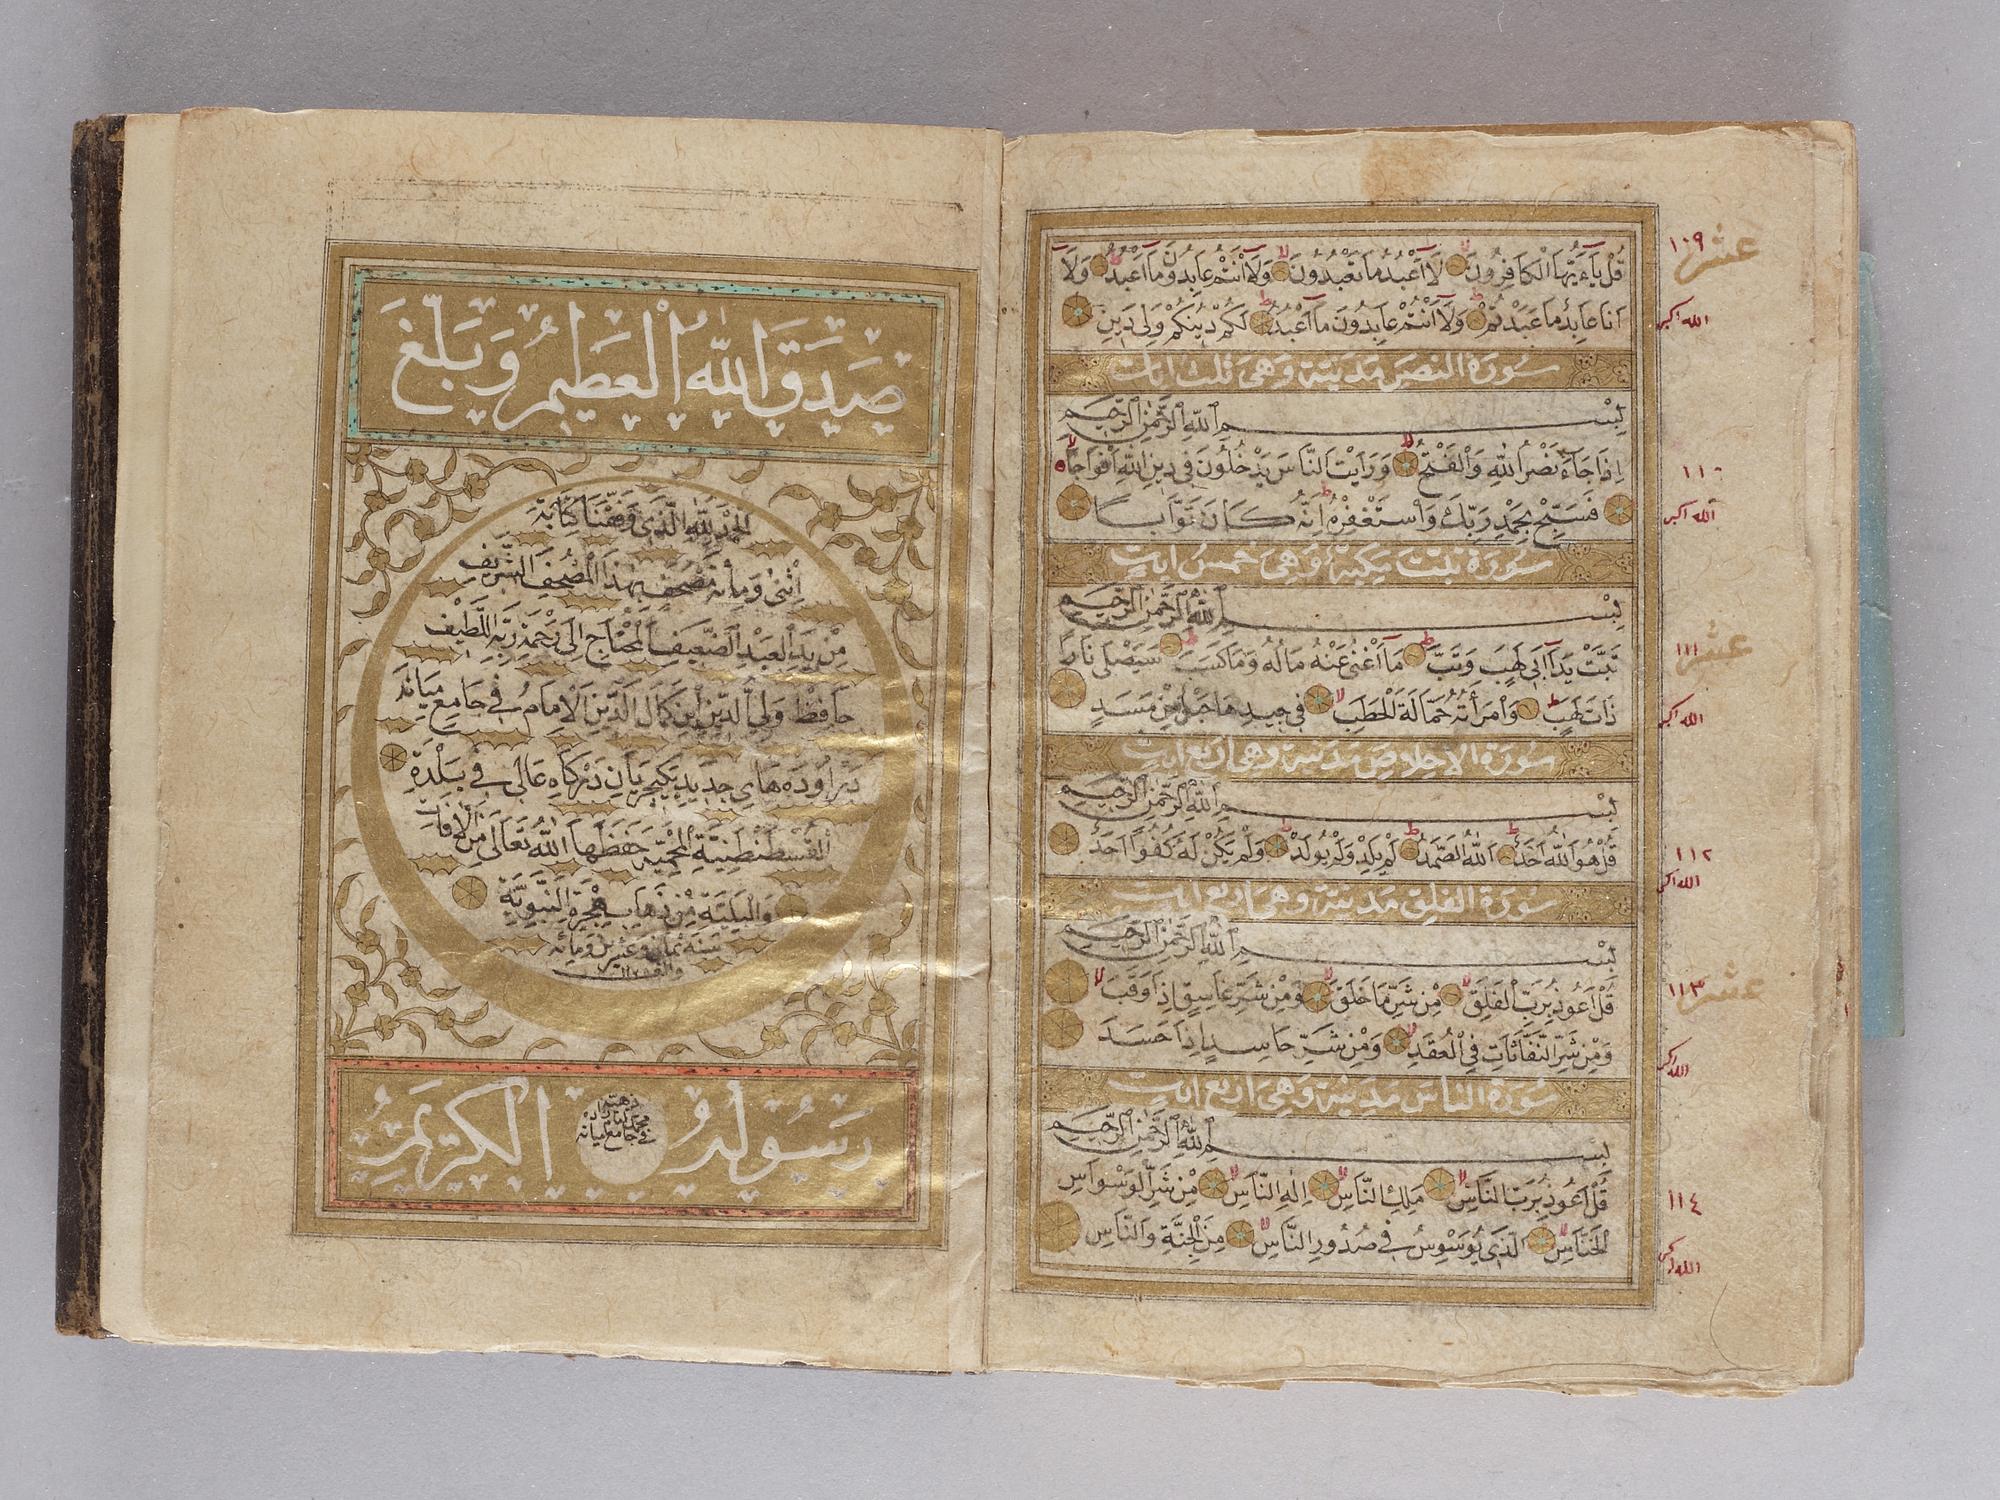 قُلْ يَاءَيُّهَا الْكَافِرُونَ لَا أَعْبُدُ مَا تَعْبُدُونَ وَلَا أَنْتُمْ عَابِدُونَ مَا أَعْبُدُ وَلَا
أَنَا عَابِدٌ مَا عَبَدْتُمْ وَلَا أَنْتُمْ عَابِدُونَ مَا أَعْبُدُ لَكُمْ دِينُكُمْ وَلِيَ دِينِ
سُورَةُ النَّصْرِ مَدَنِيَّةٌ وَهِيَ ثَلٰثُ اٰيَاتٍ
بِسْمِ اللهِ الرَّحْمٰنِ الرَّحِيمِ
إِذَا جَاءَ نَصْرُ اللهِ وَالْفَتْحُ وَرَأَيْتَ النَّاسَ يَدْخُلُونَ فِي دِينِ اللهِ أَفْوَاجًا
فَسَبِّحْ بِحَمْدِ رَبِّكَ وَاسْتَغْفِرْهُ إِنَّهُ كَانَ تَوَّابًا
سُورَةُ تَبَّتْ مَكِّيَّةٌ وَهِيَ خَمْسُ اٰيَاتٍ
بِسْمِ اللهِ الرَّحْمٰنِ الرَّحِيمِ
تَبَّتْ يَدَا أَبِي لَهَبٍ وَتَبَّ مَا أَغْنٰى عَنْهُ مَالُهُ وَمَا كَسَبَ سَيَصْلٰى نَارًا
ذَاتَ لَهَبٍ وَامْرَأَتُهُ حَمَّالَةَ الْحَطَبِ فِي جِيدِهَا حَبْلٌ مِنْ مَسَدٍ
سُورَةُ الْإِخْلَاصِ مَدَنِيَّةٌ وَهِيَ أَرْبَعُ اٰيَاتٍ
بِسْمِ اللهِ الرَّحْمٰنِ الرَّحِيمِ
قُلْ هُوَ اللهُ أَحَدٌ اَللهُ الصَّمَدُ لَمْ يَلِدْ وَلَمْ يُولَدْ وَلَمْ يَكُنْ لَهُ كُفُوًا أَحَدٌ
سُورَةُ الْفَلَقِ مَدَنِيَّةٌ وَهِيَ أَرْبَعُ اٰيَاتٍ
بِسْمِ اللهِ الرَّحْمٰنِ الرَّحِيمِ
قُلْ أَعُوذُ بِرَبِّ الْفَلَقِ مِنْ شَرِّ مَا خَلَقَ وَمِنْ شَرِّ غَاسِقٍ إِذَا وَقَبَ
وَمِنْ شَرِّ النَّفَّاثَاتِ فِي الْعُقَدِ وَمِنْ شَرِّ حَاسِدٍ إِذَا حَسَدَ
سُورَةُ النَّاسِ مَدَنِيَّةٌ وَهِيَ أَرْبَعُ اٰيَاتٍ
بِسْمِ اللهِ الرَّحْمٰنِ الرَّحِيمِ
قُلْ أَعُوذُ بِرَبِّ النَّاسِ مَلِكِ النَّاسِ إِلٰهِ النَّاسِ مِنْ شَرِّ الْوَسْوَاسِ
الْخَنَّاسِ الَّذِي يُوَسْوِسُ فِي صُدُورِ النَّاسِ مِنَ الْجِنَّةِ وَالنَّاسِ
عشر ١٠٩
الله اكبر
١١٠
الله اكبر
عشر ١١١
الله اكبر
١١٢
الله اكبر
عشر ١١٣
الله اكبر
١١٤
الله اكبر
صَدَقَ اللهُ الْعَظِيمُ وَبَلَّغَ
اَلْحَمْدُ لِلّٰهِ الَّذِي وَفَّقَنَا كِتَابَةَ
اِثْنَى وَمِائَة مُصْحَفٍ بِهٰذَا الْمُصْحَفِ الشَّرِيفِ
مِنْ يَدِ الْعَبْدِ الضَّعِيفِ الْمُحْتَاجِ إِلٰى رَحْمَةِ رَبِّهِ اللَّطِيفِ
حَافِظْ وَلِيُّ الدِّينِ ابْنِ كَمَالِ الدِّينِ الْإِمَامُ فِي جَامِعِ مِيَانَه
دَرْ اُودَه هَاىِ جَدِيدِ يَكِيچَرِيَانِ دَرْكَاهِ عَالِى فِي بَلْدَةِ
الْقُسْطَنْطِنِيَّةِ الْمَحْمِيَّةِ حَفِظَهَا اللهُ تَعَالٰى مِنَ الْاٰفَاتِ
وَالْبَلِيَّةِ مِنْ ذَهَابِ هِجْرَةِ النَّبَوِيَّةِ
سَنَةَ ثَمَانٍ وَعِشْرِينَ وَمِائَه
وَالف
رَسُولُهُ الْكَرِيمُ
ذهبه
محمد
في جامع ميانه